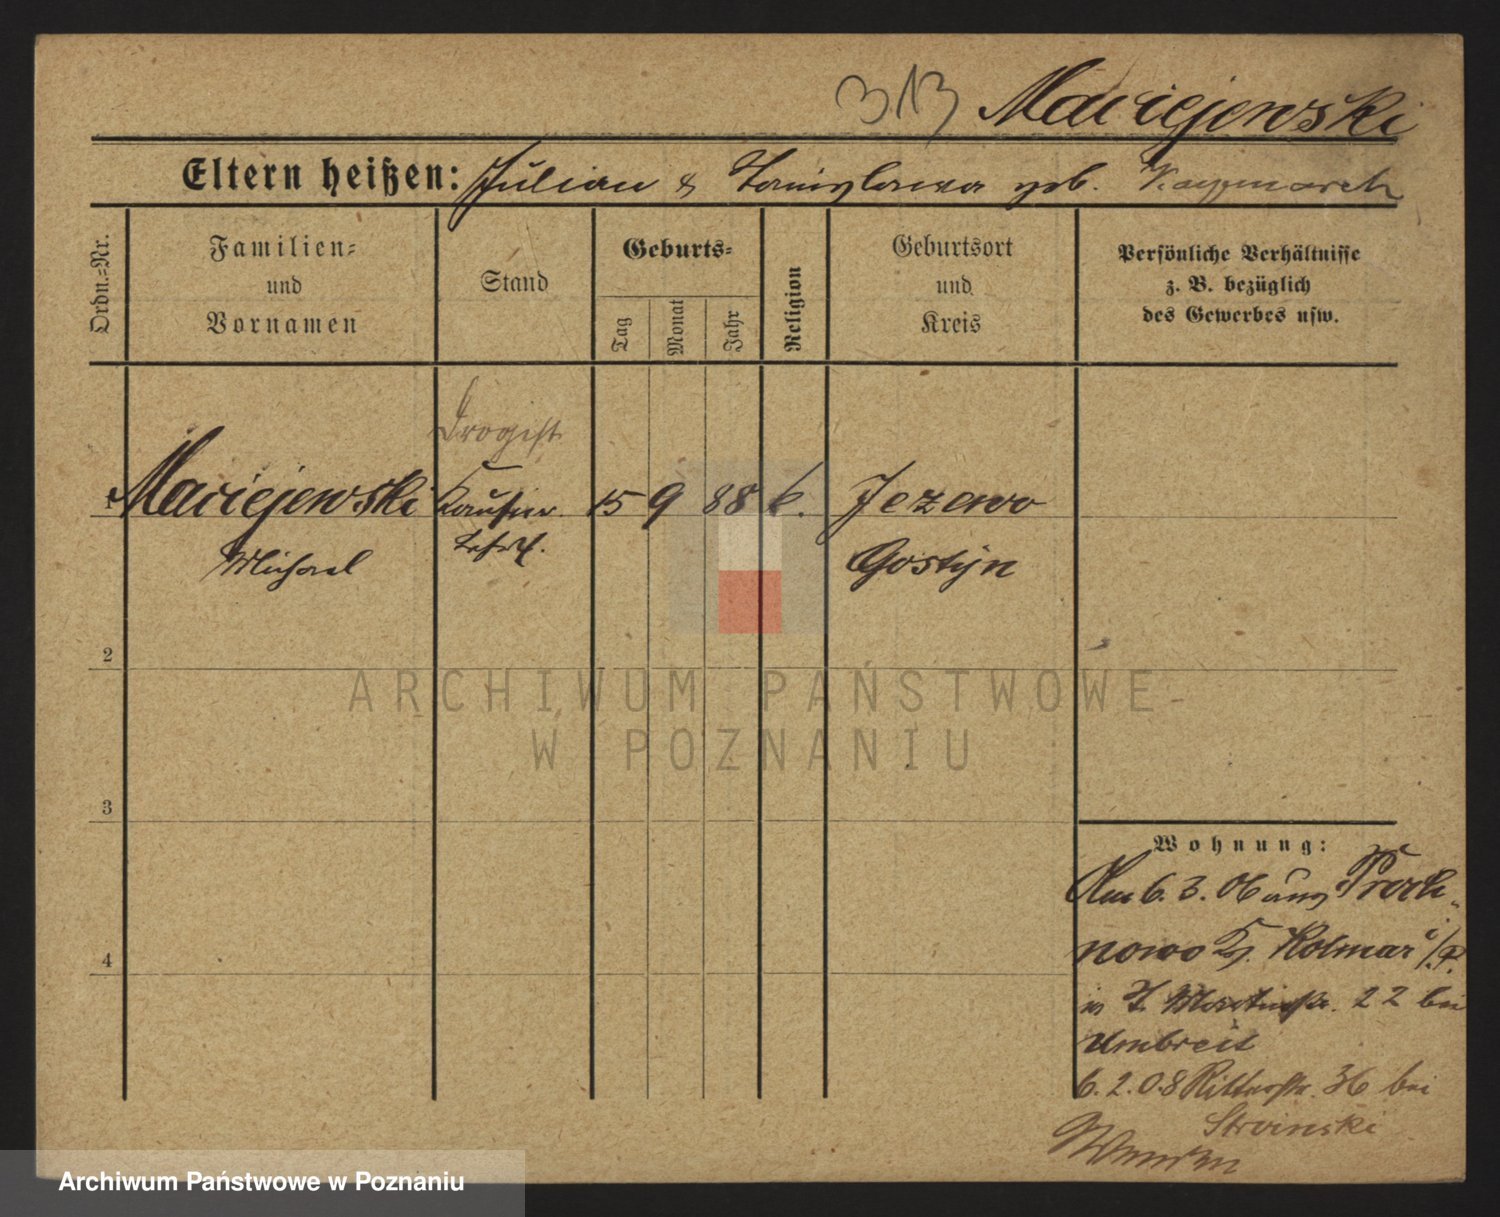 313 Maciejewski
Eltern heißen: Julian & Stanislawa geb. Kaczmarek
Ordn.-Nr.
Familien- und Vornamen
Stand
Geburts-
Tag
Monat
Jahr
Religion
Geburtsort und Kreis
Persönliche Verhältnisse
z. B. bezüglich
des Gewerbes usw.
Drogist
1 Maciejewski Kaufm. 15 9 88 k. Jezewo
Michael Lehrl. Gostyn
2
3
4
Wohnung:
Am 6. 3. 06 aus Proch-
nowo Kr. Kolmar i/P.
in St. Martinstr. 22 bei
Umbreit
6. 2. 08 Ritterstr. 36 bei
Stroinski
ARCHIWUM PAŃSTWOWE
W POZNANIU
Archiwum Państwowe w Poznaniu